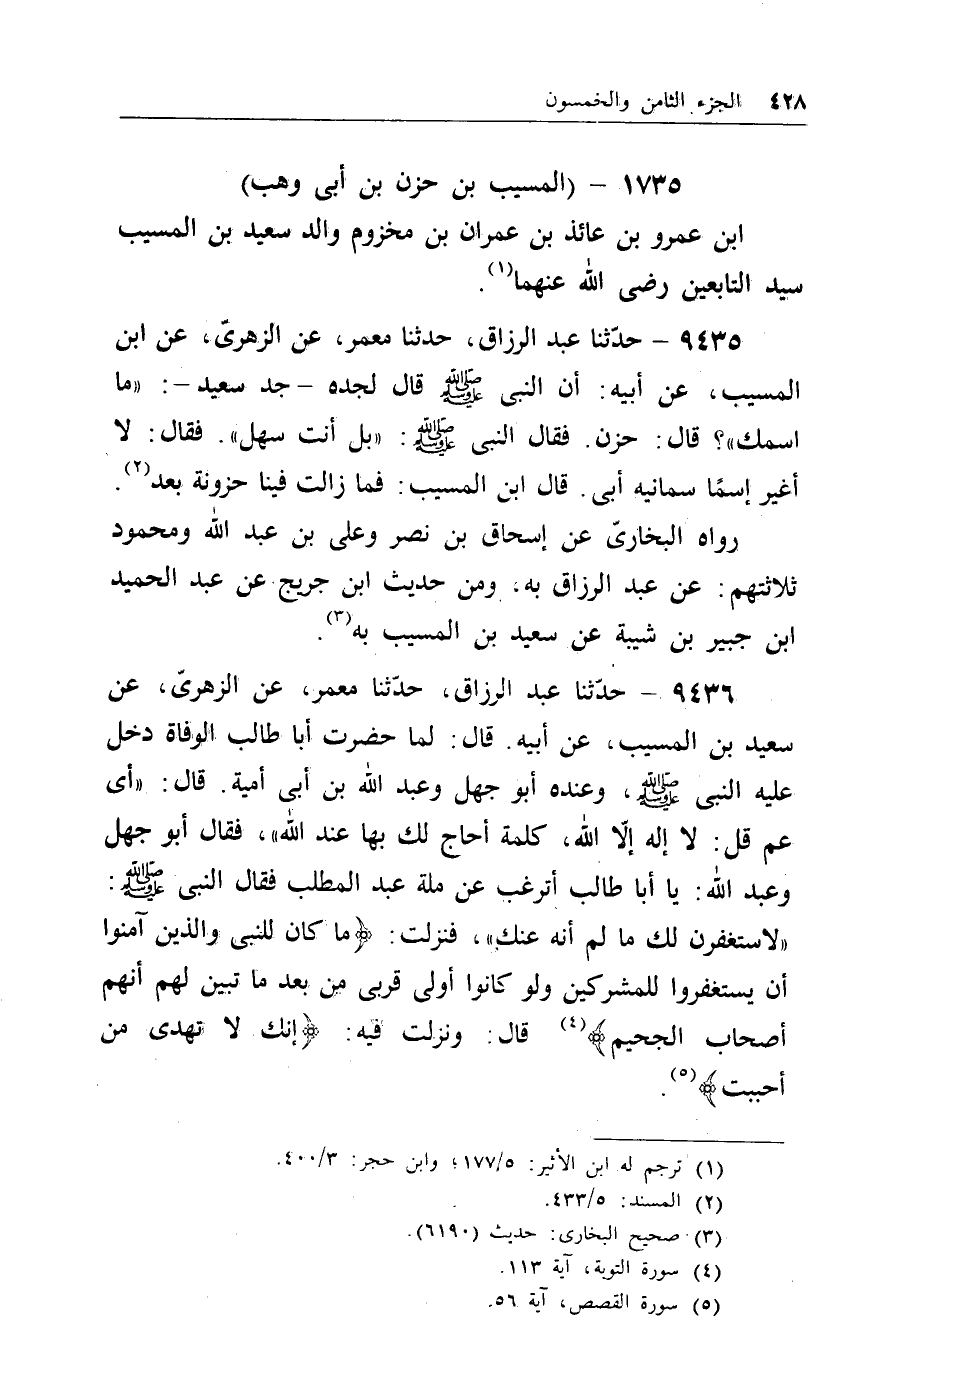 ٤٢٨ الجزء الثامن والخمسون
١٧٣٥ – (المسيب بن حزن بن أبى وهب)
ابن عمرو بن عائذ بن عمران بن مخزوم والد سعيد بن المسيب
سيد التابعين رضى الله عنهما(١).
٩٤٣٥ – حدّثنا عبد الرزاق، حدثنا معمر، عن الزهرىّ، عن ابن
المسيب، عن أبيه: أن النبى ﷺ قال لجده –جد سعيد–: «ما
اسمك»؟ قال: حزن. فقال النبى ﷺ: «بل أنت سهل». فقال: لا
أغير إسمًا سمانيه أبى. قال ابن المسيب: فما زالت فينا حزونة بعد(٢).
رواه البخارىّ عن إسحاق بن نصر وعلى بن عبد الله ومحمود
ثلاثتهم: عن عبد الرزاق به، ومن حديث ابن جريج عن عبد الحميد
ابن جبير بن شيبة عن سعيد بن المسيب به(٣).
٩٤٣٦ – حدّثنا عبد الرزاق، حدّثنا معمر، عن الزهرىّ، عن
سعيد بن المسيب، عن أبيه. قال: لما حضرت أبا طالب الوفاة دخل
عليه النبى ﷺ، وعنده أبو جهل وعبد الله بن أبى أمية. قال: «أى
عم قل: لا إله إلّا الله، كلمة أحاج لك بها عند الله»، فقال أبو جهل
وعبد الله: يا أبا طالب أترغب عن ملة عبد المطلب فقال النبى ﷺ:
«لاستغفرن لك ما لم أنه عنك»، فنزلت: ﴿ما كان للنبى والذين آمنوا
أن يستغفروا للمشركين ولو كانوا أولى قربى من بعد ما تبين لهم أنهم
أصحاب الجحيم﴾(٤) قال: ونزلت فيه: ﴿إنك لا تهدى من
أحببت﴾(٥).
(١) ترجم له ابن الأثير: ١٧٧/٥؛ وابن حجر: ٤٠٠/٣.
(٢) المسند: ٤٣٣/٥.
(٣) صحيح البخارى: حديث (٦١٩٠).
(٤) سورة التوبة، آية ١١٣.
(٥) سورة القصص، آية ٥٦.